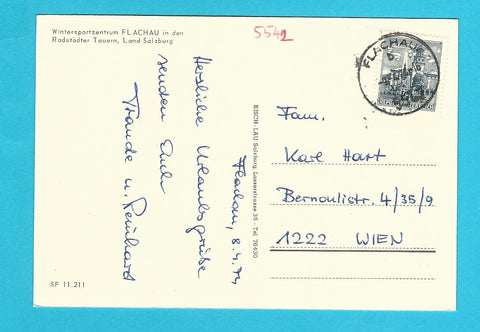 Wintersportzentrum FLACHAU in den
Radstädter Tauern, Land Salzburg
5542
FLACHAU
Flachau, 8.4.74
Herzliche Urlaubsgrüße
senden Euch
Traude u. Reinhard
RISCH-LAU Salzburg, Lasserstrasse 35 - Tel. 76430
Fam.
Karl Hart
Bernoulistr. 4/35/9
1222 WIEN
SF 11.211